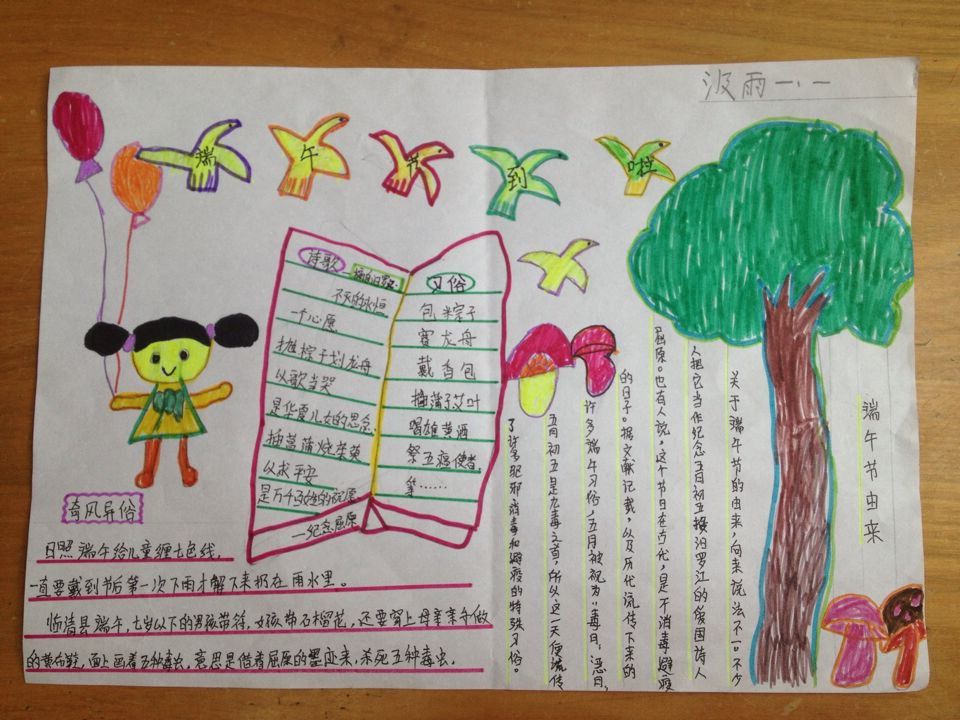 汲雨一、一
端午节到啦
诗歌
不灭的永恒
一个心愿
推粽子划龙舟
以歌当哭
是华夏儿女的思念
插菖蒲烧茱萸
以求平安
是万千
一纪念屈原
习俗
包粽子
赛龙舟
戴香包
插蒲子艾叶
喝雄黄酒
祭五瘟使者
等……
端午节由来
关于端午节的由来，向来说法不一。不少
人把它当作纪念五月初五投汨罗江的爱国诗人
屈原。也有人说，这个节日在古代，是个消毒避疫
的日子。据文献记载，以及历代流传下来的
许多端午习俗，五月被视为“毒日、恶月，
五月初五是九毒之首，所以这一天便流传
了许多驱邪消毒和避疫的特殊习俗。
奇风异俗
日照端午给儿童缠七色线，
一直要戴到节后第一次下雨才解下来扔在雨水里。
临清县端午，七岁以下的男孩带符，女孩带石榴花，还要穿上母亲亲手做
的黄布鞋，面上画着五种毒虫，意思是借着屈原的墨迹来杀死五种毒虫。